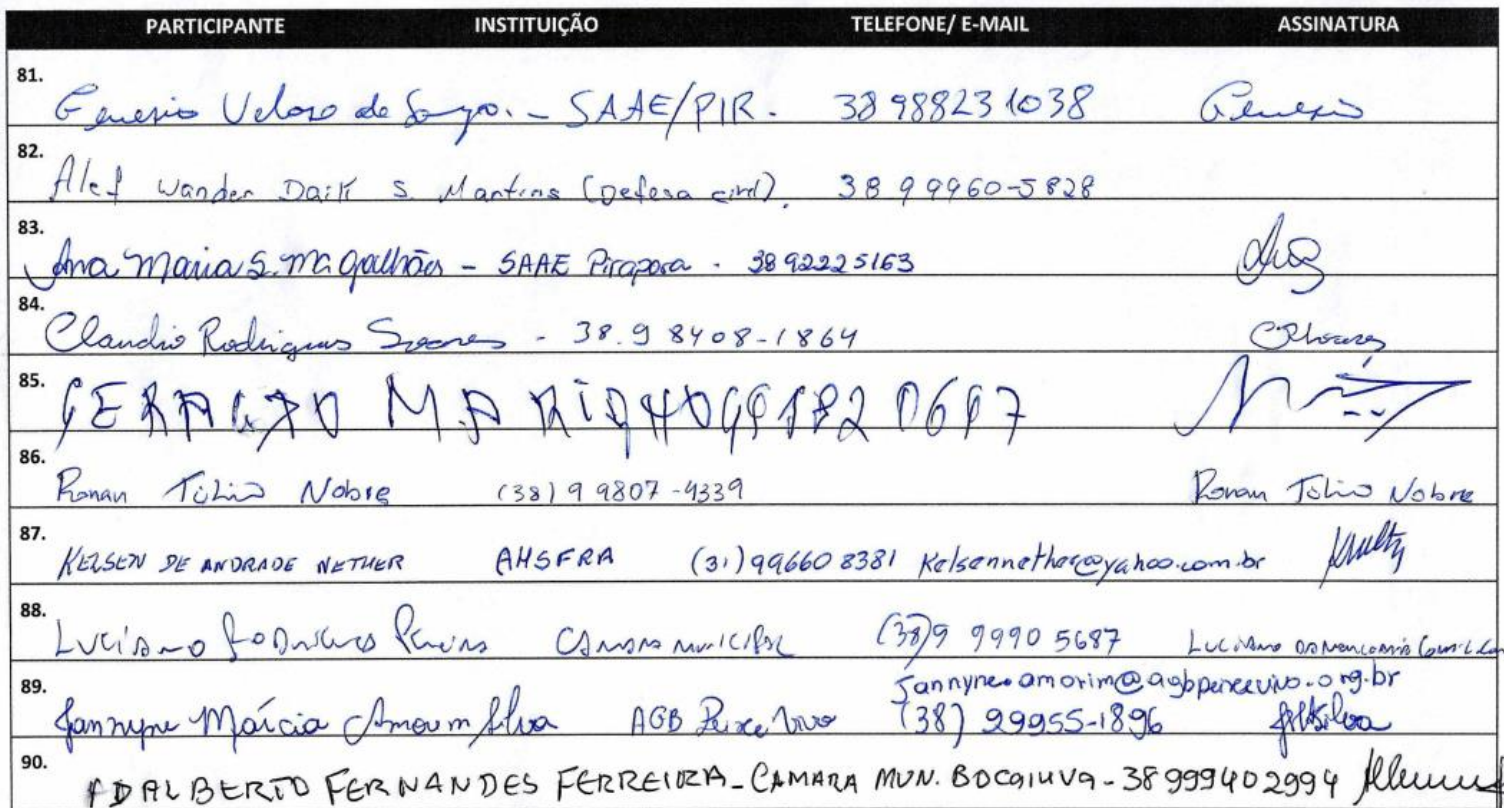 PARTICIPANTE INSTITUIÇÃO TELEFONE/ E-MAIL ASSINATURA
81.
Genesio Veloso de - SAAE/PIR. 38 988231038 Genesio
82.
Alef Wander Darli S. Martins (Defesa civil). 38 9 9960-5828
83.
Ana Maria S. Magalhães - SAAE Pirapora - 38 92225163
84.
Claudio Rodrigues Soares - 38.9 8408-1864 CRSoares
85.
GERALDO MARINHO
86.
Ronan Túlio Nobre (38) 9 9807-4339 Ronan Túlio Nobre
87.
KELSEN DE ANDRADE NETHER AHSFRA (31) 99660 8381 Kelsennether@yahoo.com.br
88.
LUCIANO RODRIGUES Pereira CAMARA MUNICIPAL (38)9 9990 5687 LUCIANO
89.
jannyne.amorim@agbpeixevivo.org.br
Jannyne Márcia Amorim Silva AGB Peixe Vivo (38) 99955-1896 JMSilva
90.
ADALBERTO FERNANDES FERREIRA - CAMARA MUN. BOCAIUVA - 38 999402994